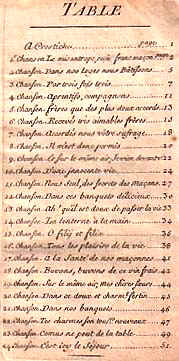 TABLE
Acrostiche page. 1
2. Chanson. Le misantrope, vain franc maçon page 2
2. Chanson. Dans nos loges nous Bâtissons 5
3. Chanson. Par trois fois trois 7
4. Chanson. Aprentifs, compagnons 11
5. Chanson. frères que des plus doux acords. 13
6. Chanson. Recevés très aimables frères 15
7. Chanson. Acordés nous votre sufrage 18
8. Chanson. Il m'est donc permis 20
9. Chanson. Sur le même air,
10. Chanson. D'une innocente vie 24
11. Chanson. Nous Seul, des
12. Chanson. Dans ces banquets délicieux. 30
13. Chanson. Ah! qu'il est doux de passer la vie 33
14. Chanson. La lanterne à la main. 34
15. Chanson. O filii et filiæ 36
16. Chanson. Tous les plaisirs de la vie. 38
17. Chanson. A la Santé de nos maçonnes 41
18. Chanson. Buvons, buvons de ce vin frais 42
19. Chanson. Sur le même air, mes chers Sœurs 44
20. Chanson. Dans ce doux et charmt. festin 45
21. Chanson. Dans nos banquets 46
22. Chanson. Tes charmes
23. Chanson. Comus ne peut de la table 49
24. Chanson. Séjour. 51